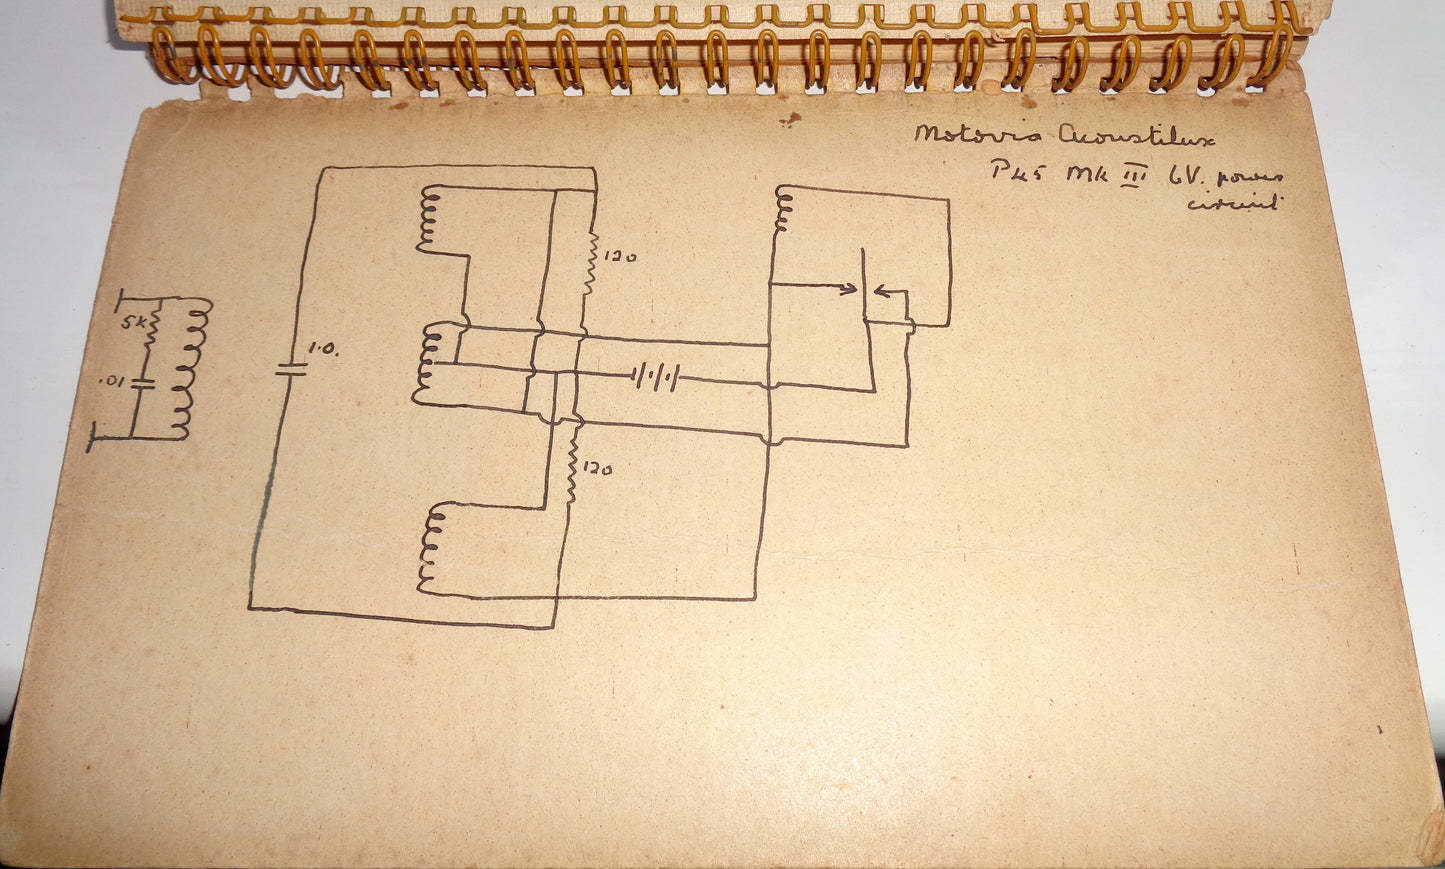 Motovia Acoustilux
P45 Mk III 6V. power
circuit
120
5K
1.0.
.01
120